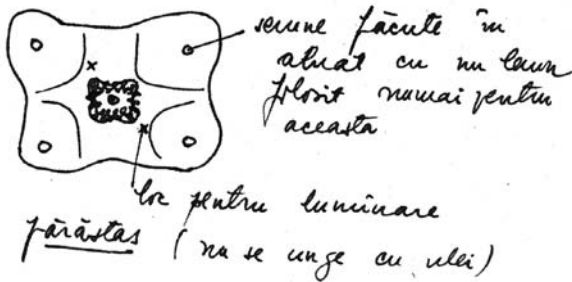 semne făcute în
aluat cu un lemn
folosit numai pentru
aceasta
loc pentru luminare
părăstas (nu se unge cu ulei)